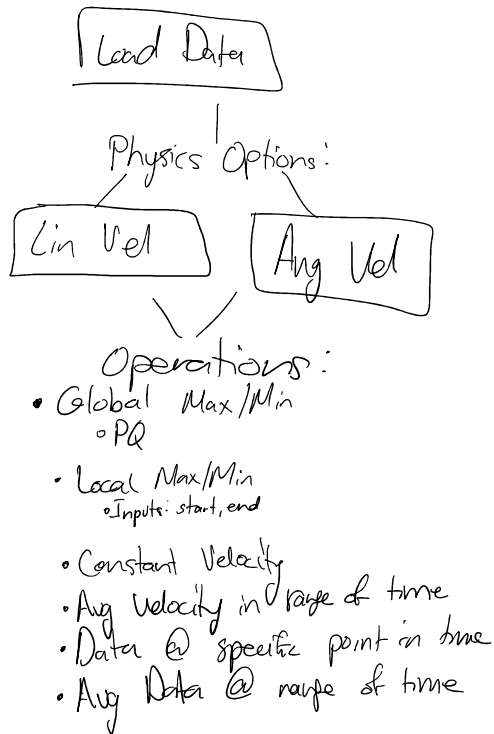 Load Data
Physics Options:
Lin Vel
Ang Vel
Operations:
• Global Max/Min
◦ PQ
• Local Max/Min
◦ Inputs: start, end
• Constant Velocity
• Avg Velocity in range of time
• Data @ specific point in time
• Avg Data @ range of time